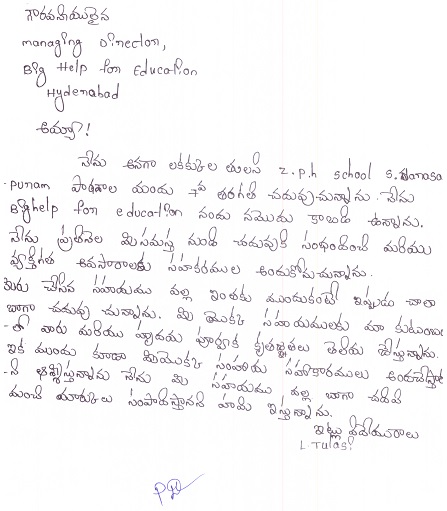 గౌరవనీయులైన
managing Director,
Big Help for Education
Hyderabad
అయ్యా!
నేను అనగా లక్కుల తులసి z.p.h school S.Narasa
-Puram పాఠశాల యందు 7వ తరగతి చదువుచున్నాను. నేను
Bighelp for education నందు నమోదు కాబడి ఉన్నాను.
నేను ప్రతినెల మీ సంస్థ నుండి చదువుకి సంభందించి మరియు
వ్యక్తిగత అవసారాలకు సహకారముల అందుకొనుచున్నాను.
మీరు చేసిన సహాయము వల్ల ఇంతకు ముందుకంటే ఇప్పుడు చాలా
బాగా చదువు చున్నాను. మీ యొక్క సహాయములకు మా కుటుంబం
-తో వారు మరియు హృదయ పూర్వక కృతజ్ఞతలు తెలియ చేస్తున్నాను.
ఇక ముందు కూడా మీయొక్క సహాయ సహాకారములు అందచేస్తార
-ని ఆశిస్తున్నాను నేను మీ సహాయము వల్ల బాగా చదివి
మంచి మార్కులు సంపాదిస్తానని హామి ఇస్తున్నాను.
ఇట్లు విదేయురాలు
L.Tulasi